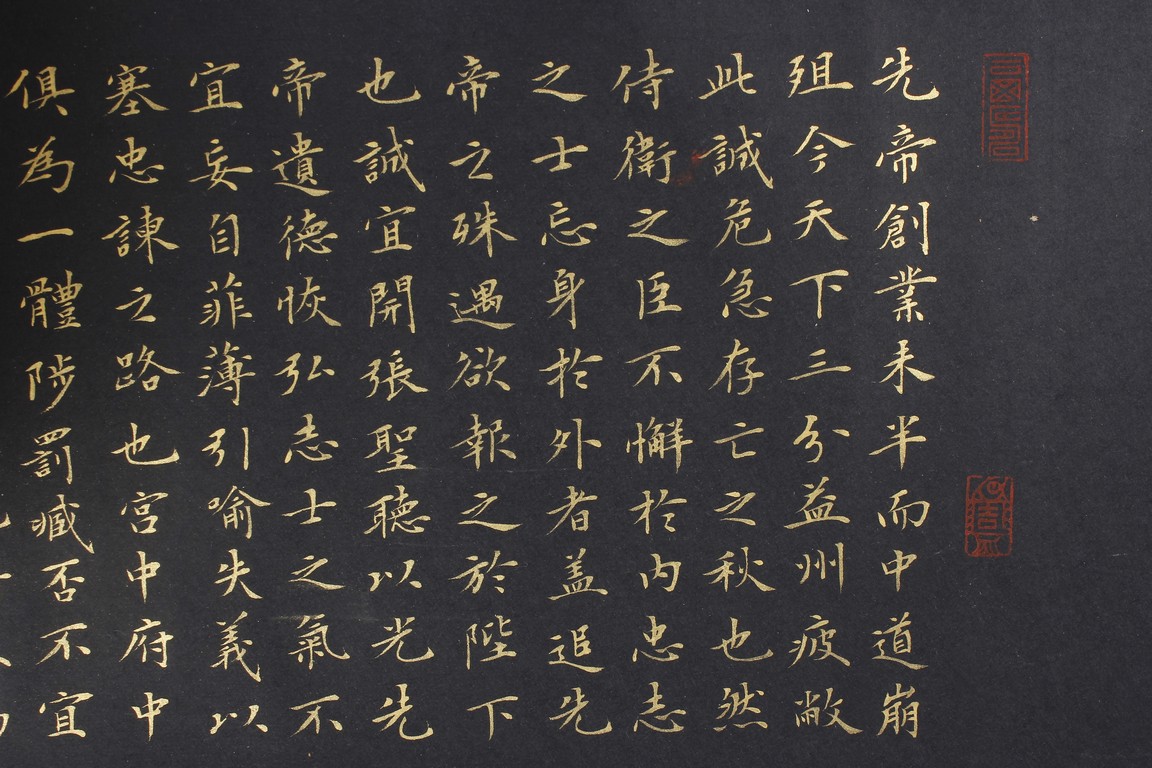 先帝創業未半而中道崩
殂今天下三分益州疲敝
此誠危急存亡之秋也然
侍衛之臣不懈於內忠志
之士忘身於外者蓋追先
帝之殊遇欲報之於陛下
也誠宜開張聖聽以光先
帝遺德恢弘志士之氣不
宜妄自菲薄引喻失義以
塞忠諫之路也宮中府中
俱為一體陟罰臧否不宜